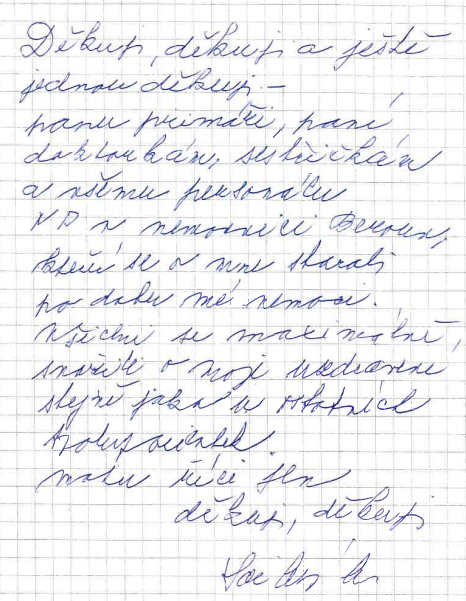 Děkuji, děkuji a ještě
jednou děkuji –
panu primáři, paní
doktorkám, sestřičkám
a všemu personálu
NP v nemocnici Beroun,
kteří se o mne starali
po dobu mé nemoci.
Všichni se maximálně,
snažili o moje uzdravení
stejně jako u ostatních
spolupacientek.
mohu říci jen
děkuji, děkuji